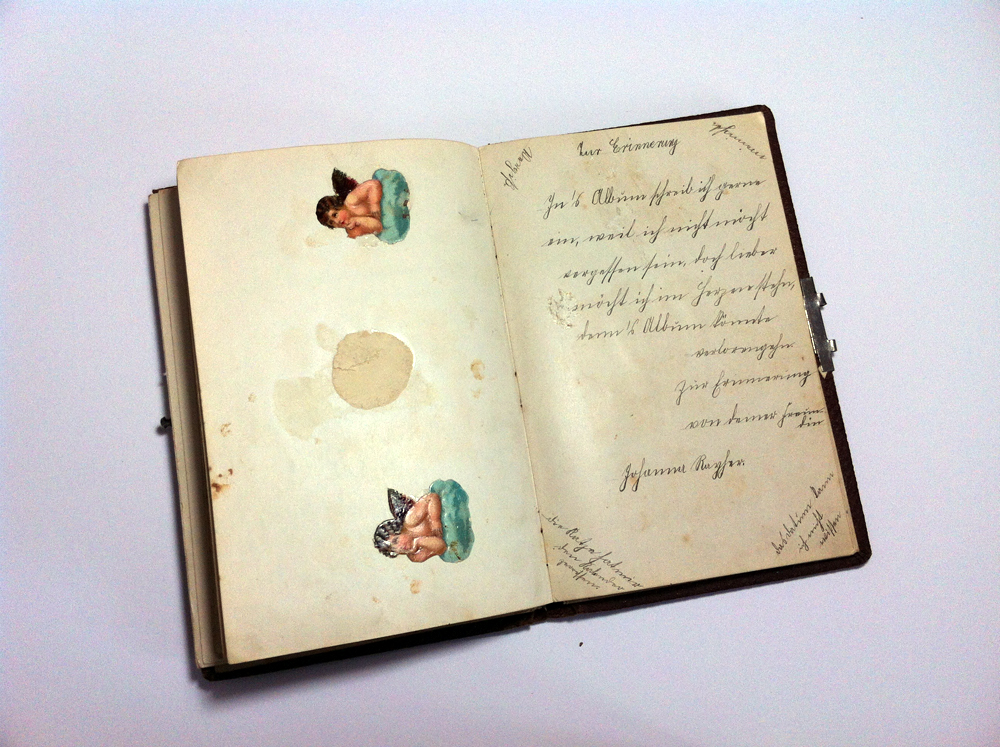 Zur Erinnerung
In's Album schreib ich gerne
ein, weil ich nicht möcht
vergessen sein, doch lieber
möcht ich im Herzen stehn,
denn's Album könnte
verlorengehn.
Zur Erinnerung
von deiner Freun-
din
Johanna
die Katze
den
das datum kann
ich nicht